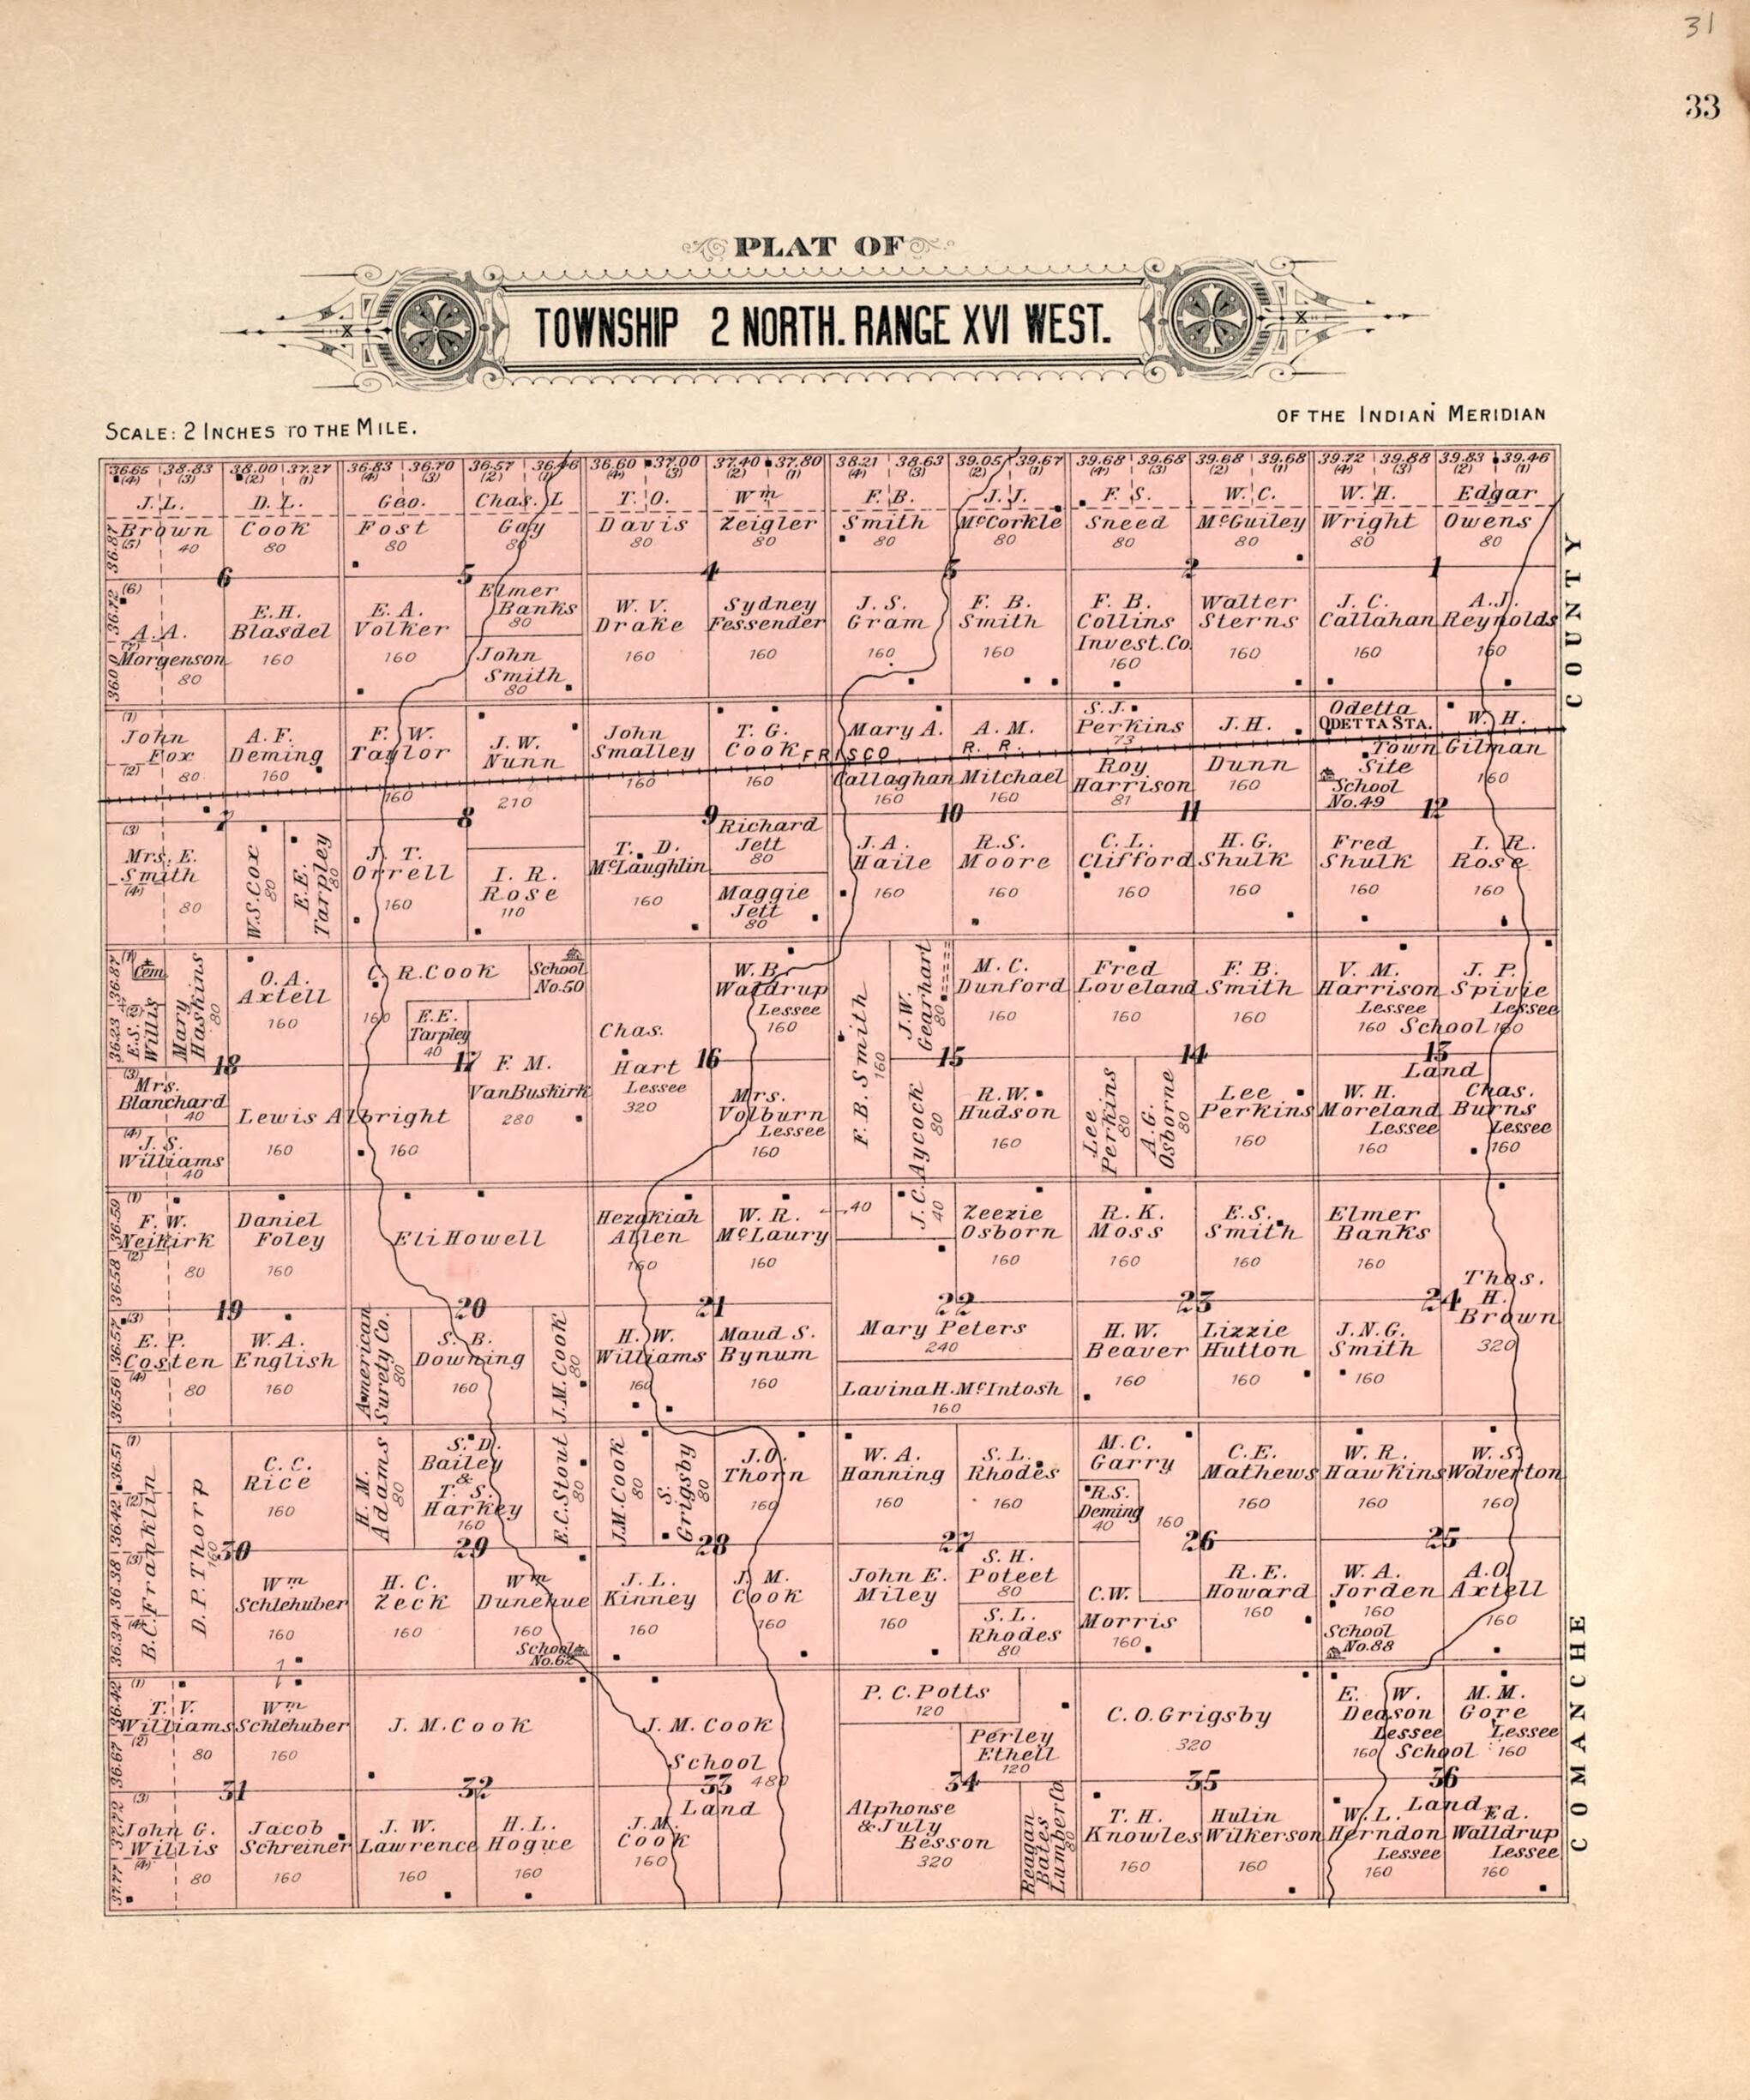 31
33
PLAT OF
TOWNSHIP 2 NORTH. RANGE XVI WEST.
SCALE: 2 INCHES TO THE MILE.
OF THE INDIAN MERIDIAN
36.65 38.83 38.00 37.27 36.83 36.70 36.57 36.46 36.60 37.00 37.40 37.80 38.21 38.63 39.05 39.67 39.68 39.68 39.68 39.68 39.72 39.88 39.83 39.46
(4) (3) (2) (1) (4) (3) (2) (1) (4) (3) (2) (1) (4) (3) (2) (1) (4) (3) (2) (1) (4) (3) (2) (1)
J. L. Brown
(5) 40
36.87
D. L. Cook
80
Geo. Fost
80
Chas. L Gay
80
T. O. Davis
80
Wm Zeigler
80
F. B. Smith
80
J. J. McCorkle
80
F. S. Sneed
80
W. C. McGuiley
80
W. H. Wright
80
Edgar Owens
80
6 5 4 3 2 1
(6)
36.72
A. A.
(7)
Morgenson
80
E. H. Blasdel
160
E. A. Volker
160
Elmer Banks
80
John Smith
80
W. V. Drake
160
Sydney Fessender
160
J. S. Gram
160
F. B. Smith
160
F. B. Collins Invest. Co.
160
Walter Sterns
160
J. C. Callahan
160
A. J. Reynolds
160
COUNTY
(1)
John Fox
(2) 80
A. F. Deming
160
F. W. Taylor
160
J. W. Nunn
210
John Smalley
160
T. G. Cook
160
FRISCO R. R.
Mary A. Callaghan
160
A. M. Mitchael
160
S. J. Perkins
73
Roy Harrison
81
J. H. Dunn
160
Odetta
ODETTA STA.
Town Site
School No. 49
W. H. Gilman
160
7 8 9 10 11 12
(3)
Mrs. E. Smith
(4)
80
W. S. Cox
80
E. E. Tarpley
80
J. T. Orrell
160
I. R. Rose
110
T. D. McLaughlin
160
Richard Jett
80
Maggie Jett
80
J. A. Haile
160
R. S. Moore
160
C. L. Clifford
160
H. G. Shulk
160
Fred Shulk
160
I. R. Rose
160
(1)
Cem.
36.87
36.23
(2)
E. S. Willis
Mary Haskins
80
O. A. Axtell
160
C. R. Cook
160
School No. 50
E. E. Tarpley
40
Chas. Hart
Lessee
320
W. B. Waldrup
Lessee
160
F. B. Smith
160
J. W. Gearhart
80
M. C. Dunford
160
Fred Loveland
160
F. B. Smith
160
V. M. Harrison
Lessee
160
J. P. Spivie
Lessee
160
School Land
18 17 16 15 14 13
(3)
Mrs. Blanchard
40
(4)
J. S. Williams
40
Lewis Albright
160 160
F. M. VanBuskirk
280
Mrs. Volburn
Lessee
160
J. C. Aycock
80
40
R. W. Hudson
160
Lee Perkins
80
A. G. Osborne
80
Lee Perkins
160
W. H. Moreland
Lessee
160
Chas. Burns
Lessee
160
(1)
36.59
F. W. Neikirk
(2)
36.58
80
Daniel Foley
160
Eli Howell
Hezakiah Allen
160
W. R. McLaury
160
40
Zeezie Osborn
160
R. K. Moss
160
E. S. Smith
160
Elmer Banks
160
Thos. H. Brown
320
19 20 21 22 23 24
(3)
36.57
E. P. Costen
(4)
36.56
80
W. A. English
160
American Surety Co.
80
S. B. Downing
160
J. M. Cook
80
H. W. Williams
160
Maud S. Bynum
160
Mary Peters
240
Lavina H. McIntosh
160
H. W. Beaver
160
Lizzie Hutton
160
J. N. G. Smith
160
(1)
36.51
(2)
36.42
(3)
36.38
(4)
36.34
B. C. Franklin
D. P. Thorp
160
C. C. Rice
160
H. M. Adams
80
S. D. Bailey & T. S. Harkey
160
E. C. Stout
80
J. M. Cook
80
S. Grigsby
80
J. O. Thorn
160
W. A. Hanning
160
S. L. Rhodes
160
M. C. Garry
160
R. S. Deming
40
C. E. Mathews
160
W. R. Hawkins
160
W. S. Wolverton
160
30 29 28 27 26 25
Wm Schlehuber
160
H. C. Zeck
160
Wm Dunehue
160
School No. 62
J. L. Kinney
160
J. M. Cook
160
John E. Miley
160
S. H. Poteet
80
S. L. Rhodes
80
C. W. Morris
160
R. E. Howard
160
W. A. Jorden
160
School No. 88
A. O. Axtell
160
COMANCHE
(1)
36.42
T. V. Williams
(2)
36.67
80
Wm Schlehuber
160
J. M. Cook
J. M. Cook
School Land
480
P. C. Potts
120
Perley Ethell
120
C. O. Grigsby
320
E. W. Deason
Lessee
160
M. M. Gore
Lessee
160
School Land
31 32 33 34 35 36
(3)
37.22
John G. Willis
(4)
37.77
80
Jacob Schreiner
160
J. W. Lawrence
160
H. L. Hogue
160
J. M. Cook
160
Alphonse & July Besson
320
Reagan Bates Lumber Co.
80
T. H. Knowles
160
Hulin Wilkerson
160
W. L. Herndon
Lessee
160
Ed. Walldrup
Lessee
160